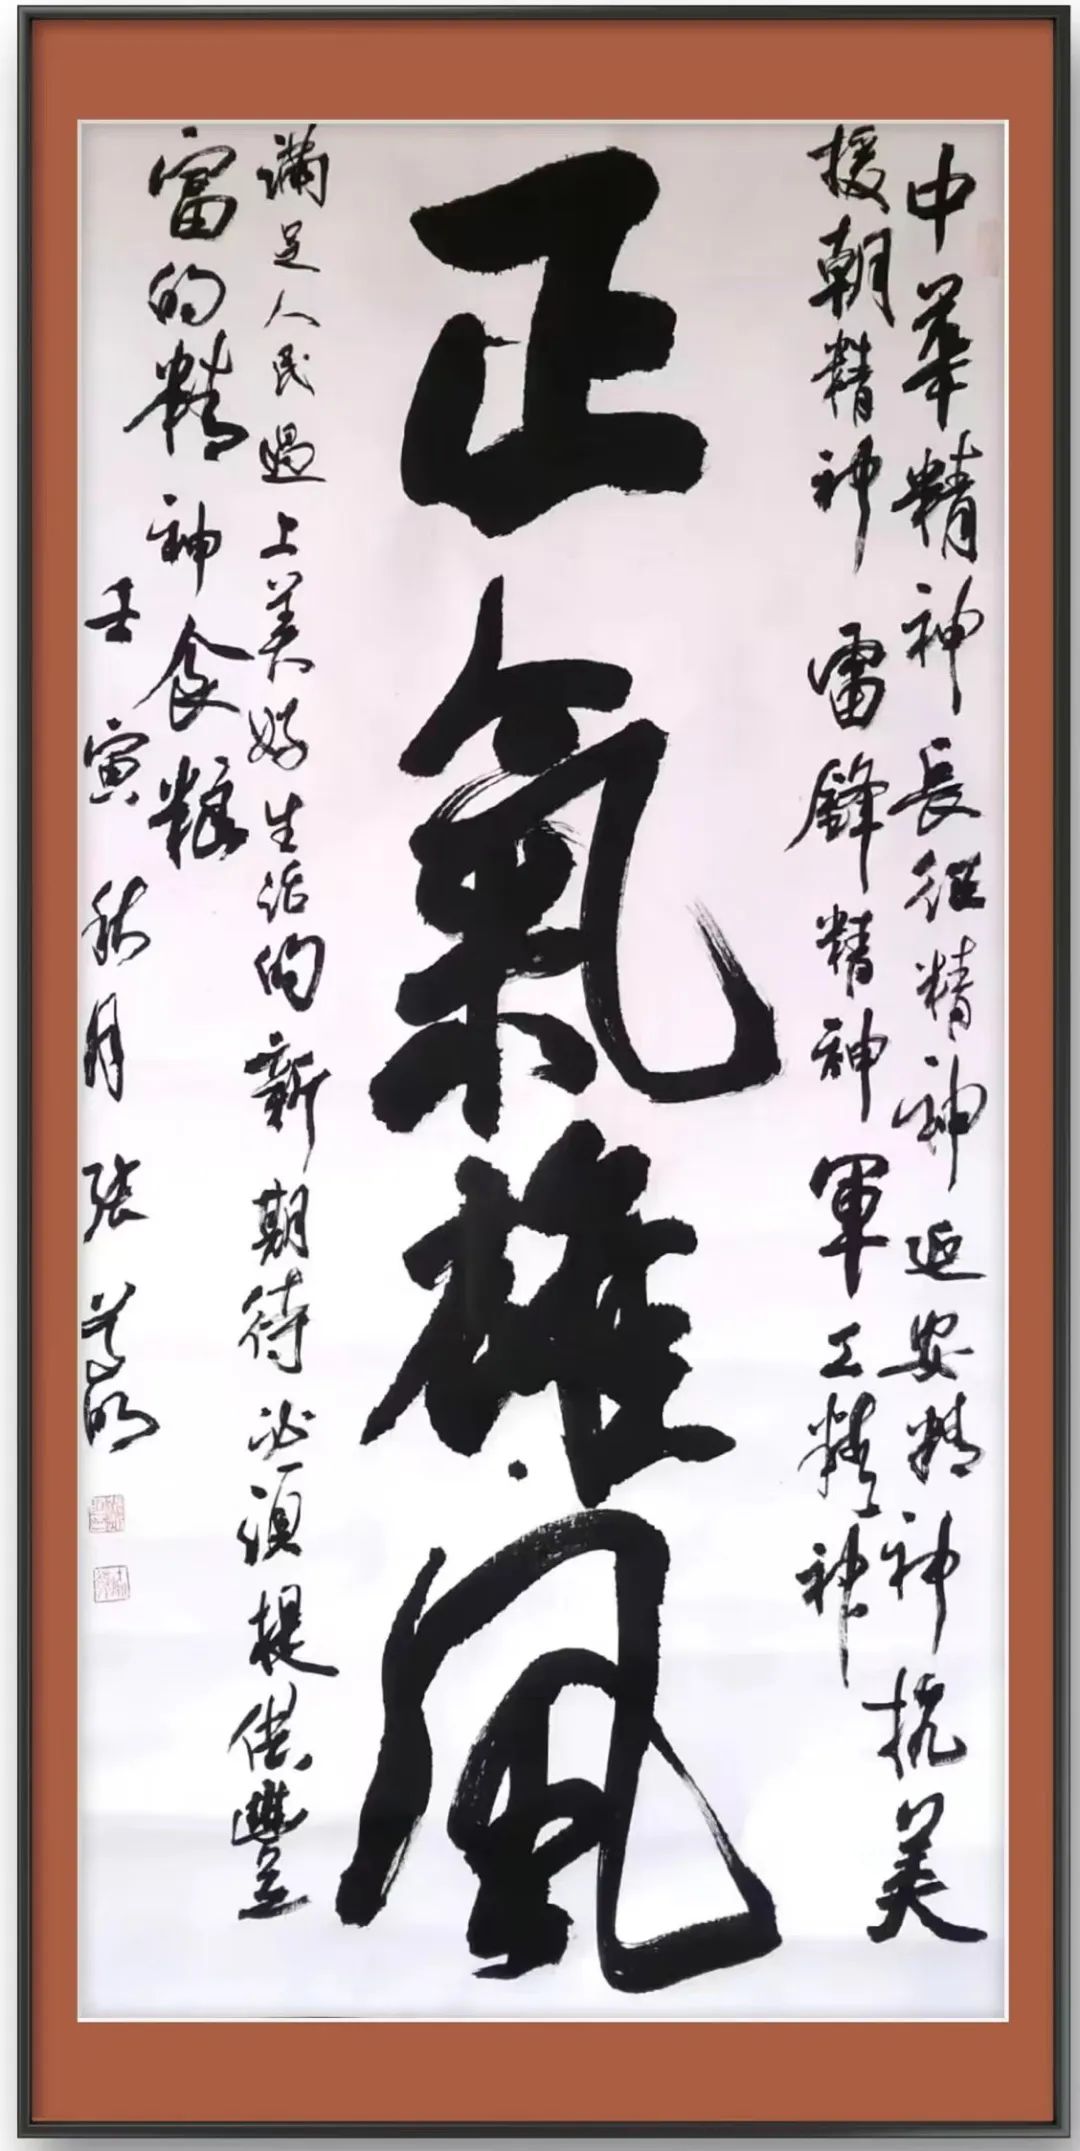 中華精神長征精神延安精神抗美
援朝精神雷鋒精神軍工精神
正氣雄風
滿足人民過上美好生活的新期待必須提供豐
富的精神食糧
壬寅秋月張